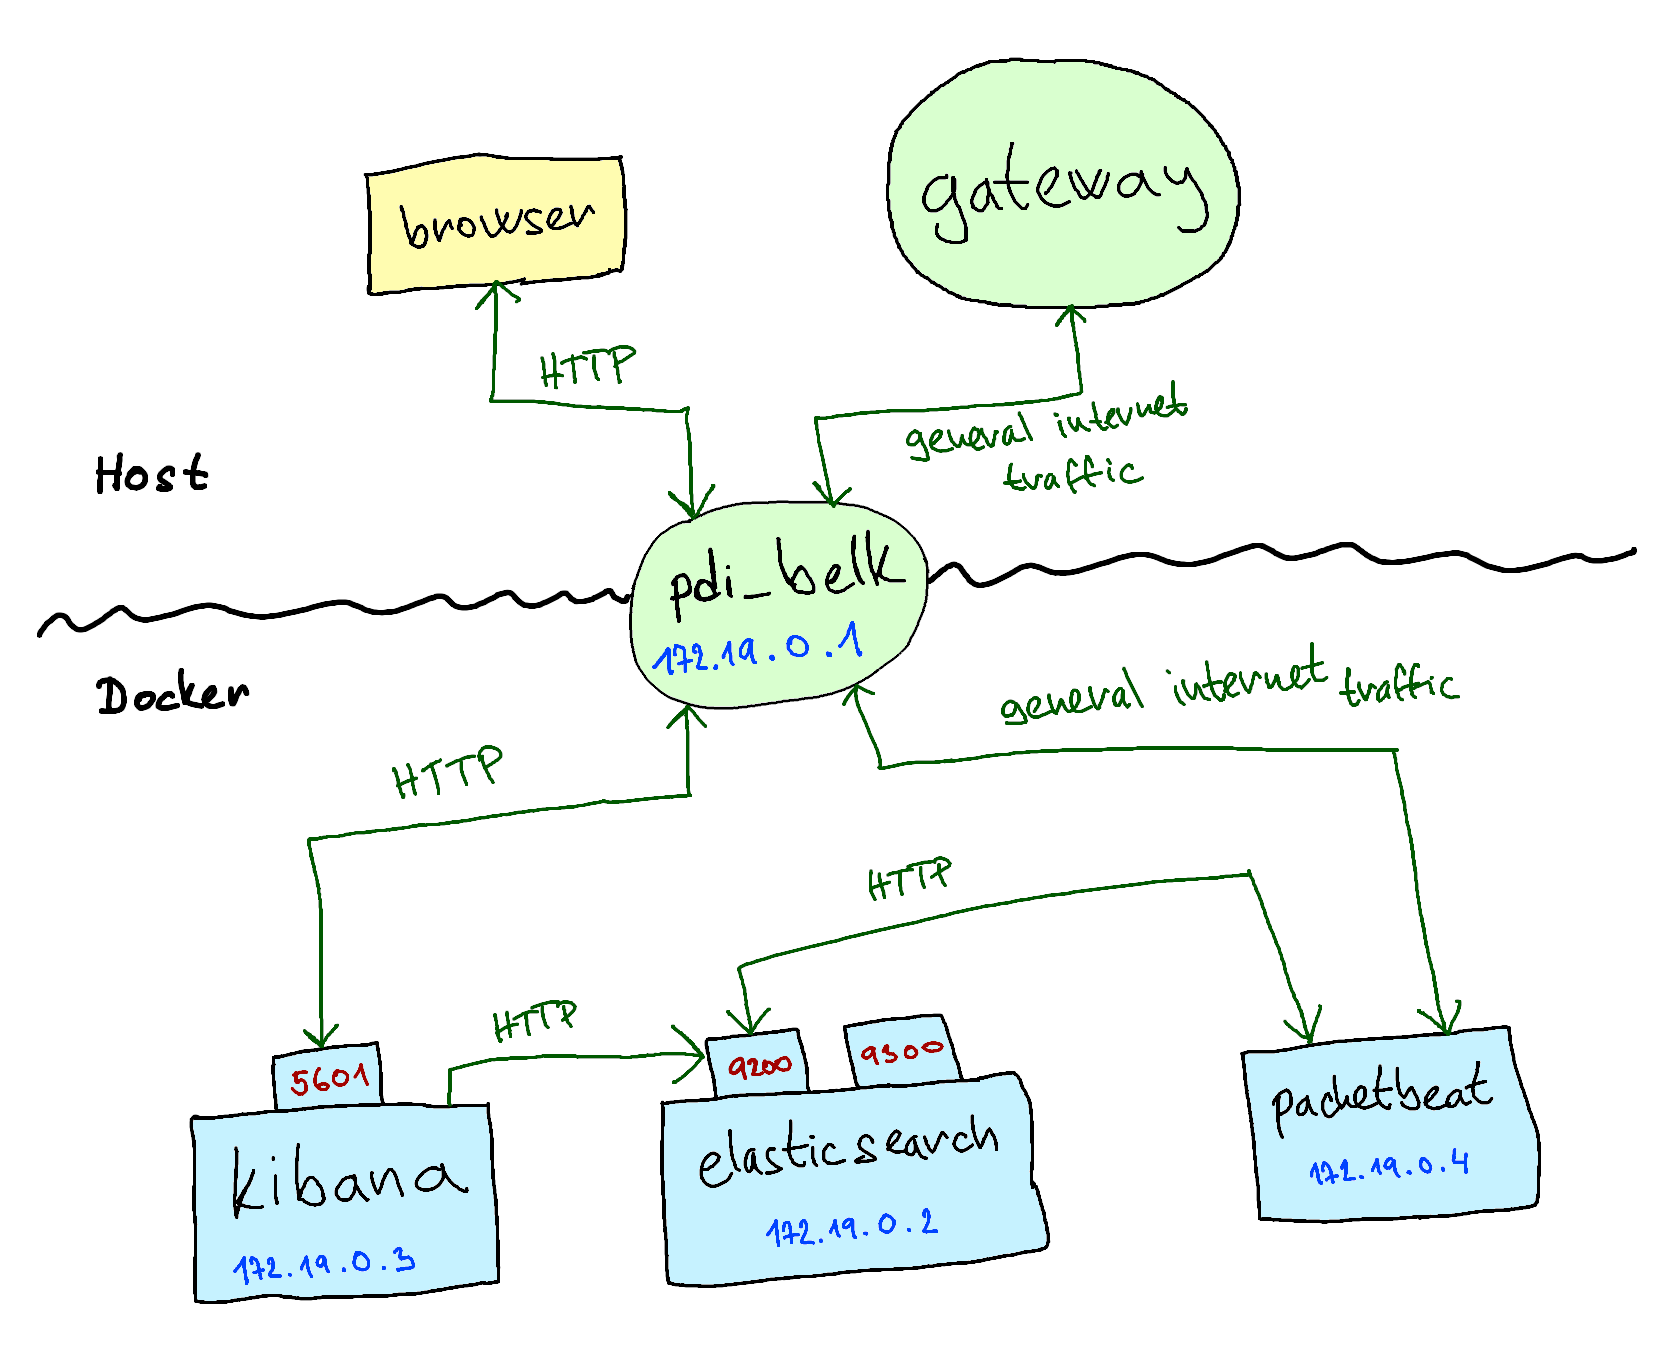 gateway
browser
HTTP
general internet
traffic
Host
pdi_belk
172.19.0.1
Docker
general internet traffic
HTTP
HTTP
HTTP
5601
9200
9300
kibana
172.19.0.3
elasticsearch
172.19.0.2
packetbeat
172.19.0.4